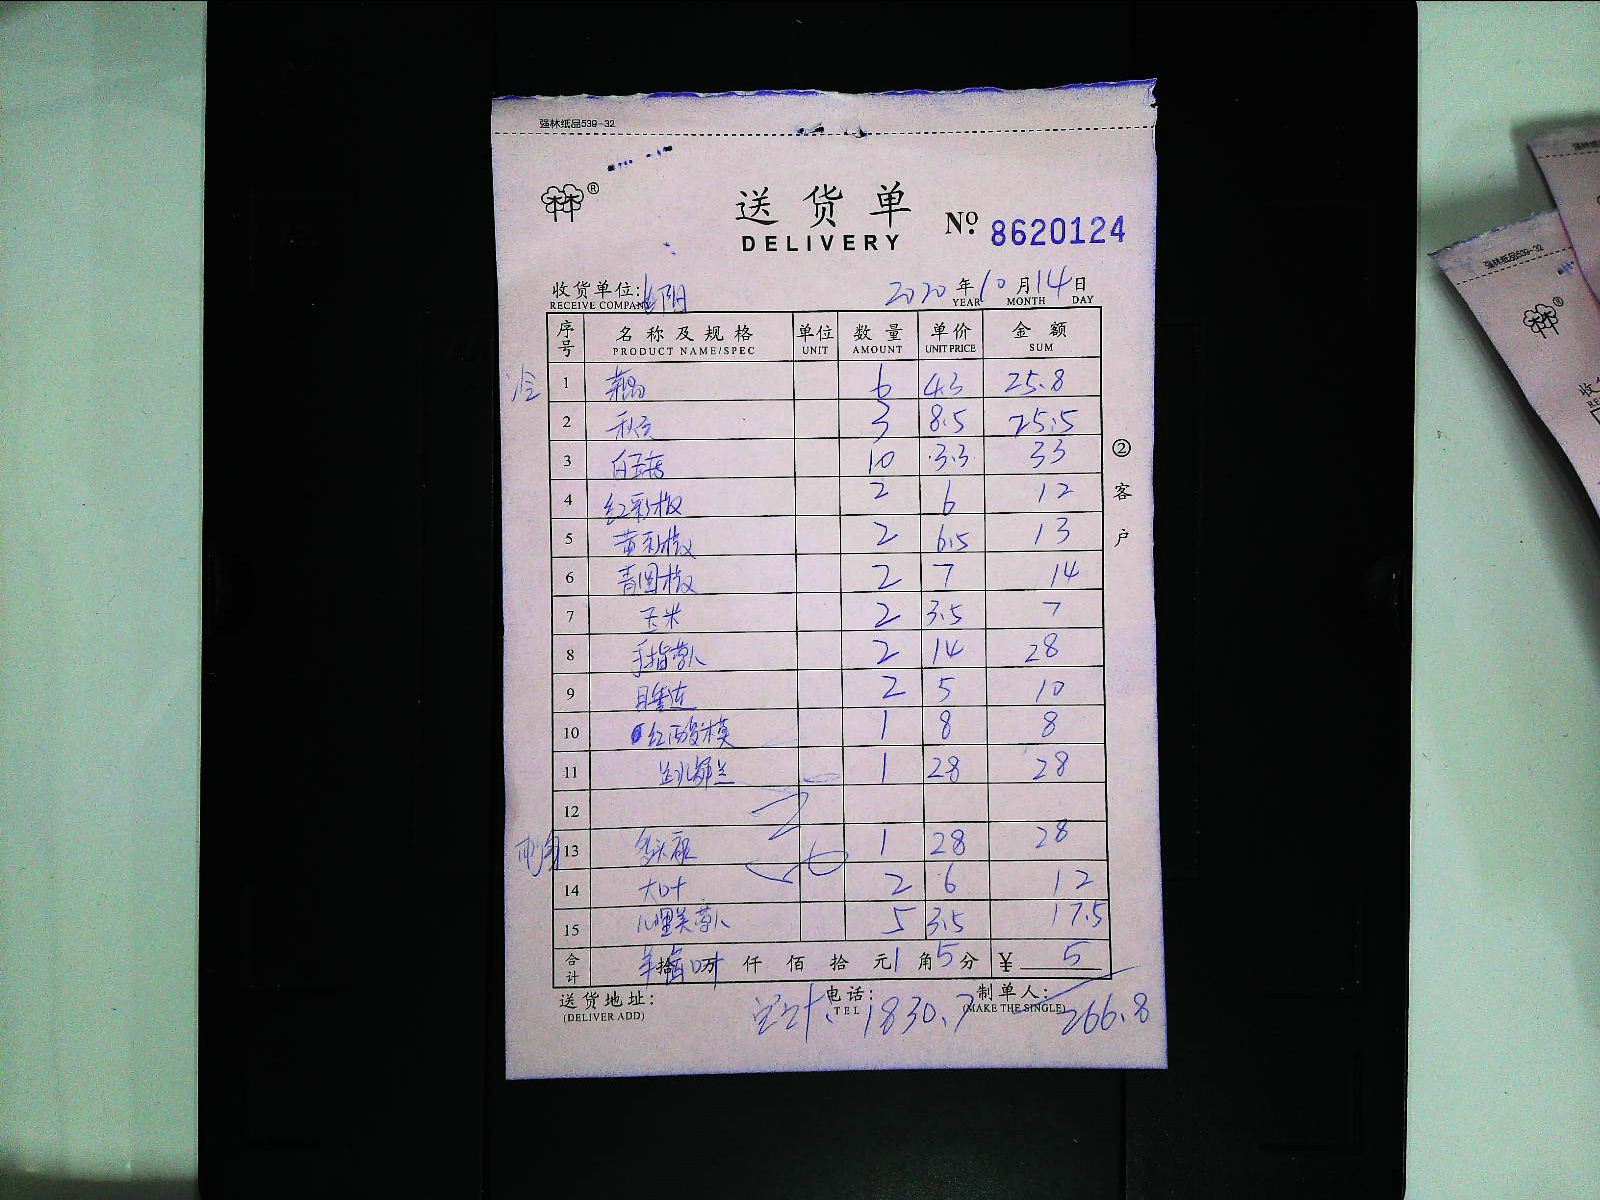 强林纸品539-32
®
送货单
DELIVERY
Nº 8620124
收货单位:
RECEIVE COMPANY
2020 年 10 月 14 日
YEAR MONTH DAY
序号 名称及规格 单位 数量 单价 金额
PRODUCT NAME/SPEC UNIT AMOUNT UNIT PRICE SUM
冷
1 6 4.3 25.8
2 秋豆 3 8.5 25.5
3 白玉菇 10 3.3 33
4 红彩椒 2 6 12
5 黄彩椒 2 6.5 13
6 青圆椒 2 7 14
7 玉米 2 3.5 7
8 手指 2 14 28
9 2 5 10
10 红酸模 1 8 8
11 1 28 28
12
13 1 28 28
14 大叶 2 6 12
15 5 3.5 17.5
合计 拾 万 仟 佰 拾 元 1 角 5 分 ¥ 5
② 客户
送货地址:
(DELIVER ADD)
电话:
TEL
制单人:
(MAKE THE SINGLE)
1830.7
266.8
强林纸品539-32
®